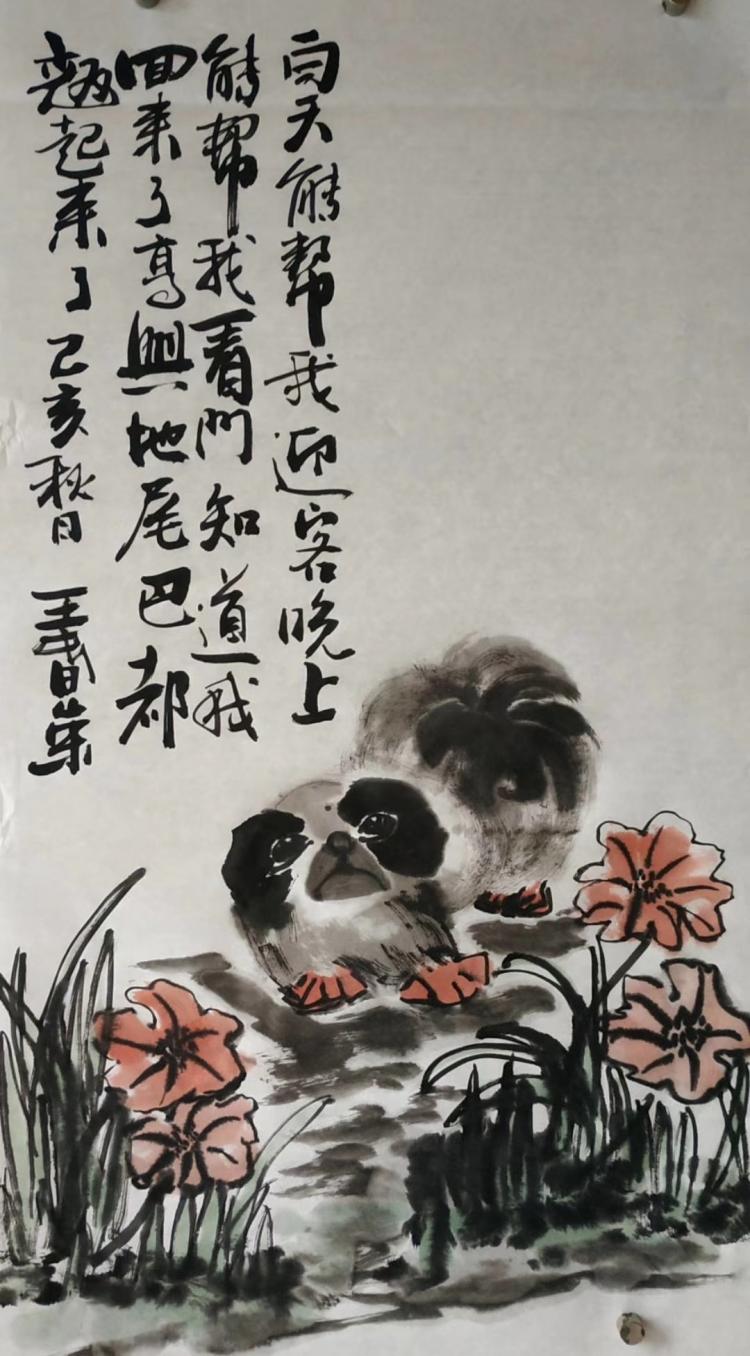 白天能帮我迎客晚上
能帮我看门知道我
回来了高興地尾巴都
翘起来了己亥秋日 王春葉